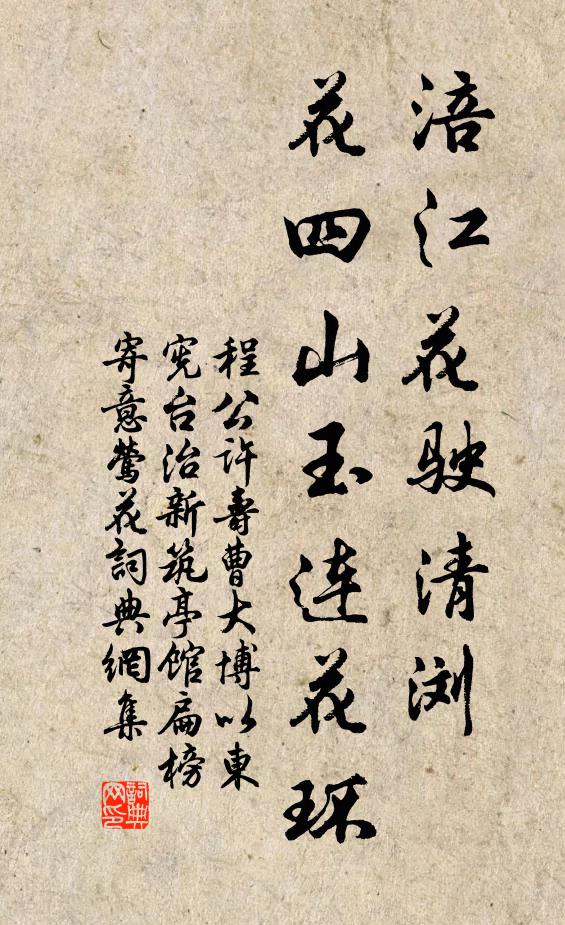 涪江花驶清浏
花四山玉连花环
程公许寿曹大博以東
宪台治新筑亭馆扁榜
寄意鶯花詞典網集
詞典
网印